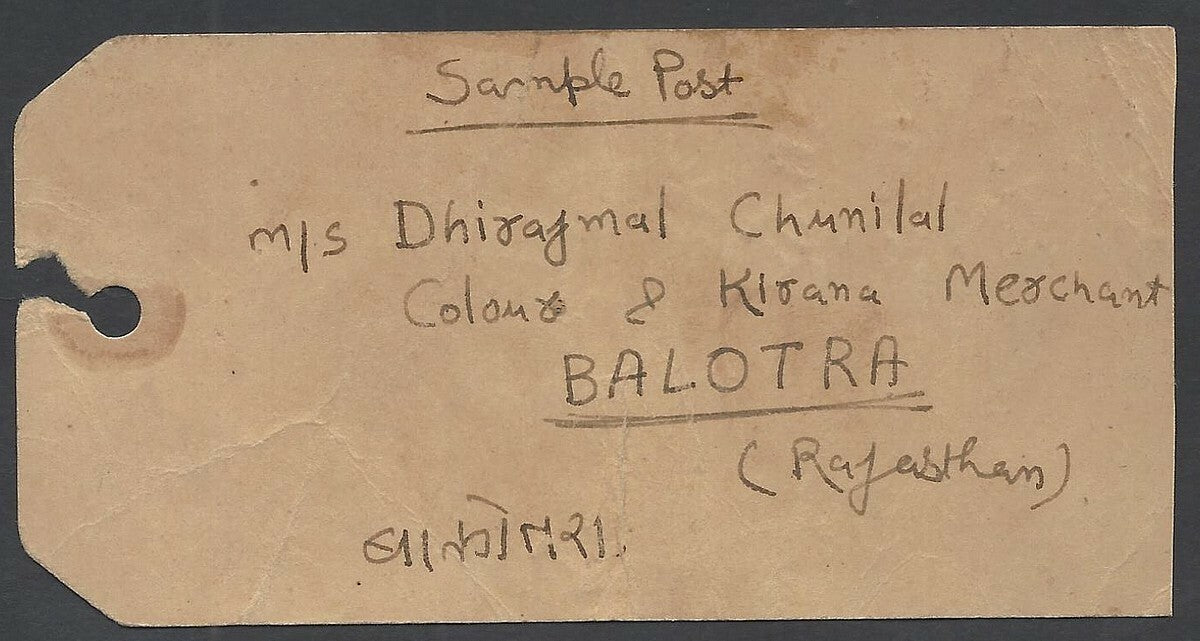 Sample Post
M/S Dhirajmal Chunilal
Colour & Kirana Merchant
BALOTRA
(Rajasthan)
બાલોતરા.